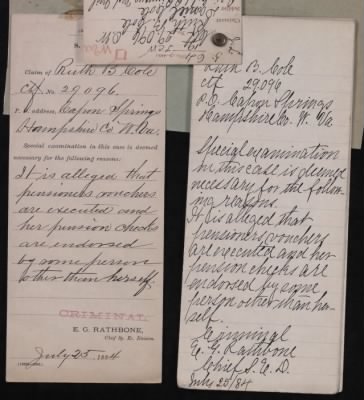 Claim of Ruth B. Cole
Ctf No. 29,096.
P. O. address, Capon Springs
Hampshire Co. W. Va.
Special examination in this case is deemed
necessary for the following reasons:
It is alleged that
pensioners vouchers
are executed and
her pension checks
are endorsed
by some person
other than herself.
CRIMINAL.
E. G. RATHBONE,
Chief Sp. Ex. Division.
July 25, 1884
Ruth B. Cole
ctf 29096
P.O. Capon Springs
Hampshire Co. W. Va
Special examination
in this case is deemed
necessary for the follow-
ing reasons.
It is alleged that
pensioners vouchers
are executed and her
pension checks are
endorsed by some
person other than her-
self.
Criminal
E. G. Rathbone
Chief S. E. D.
July 25/84